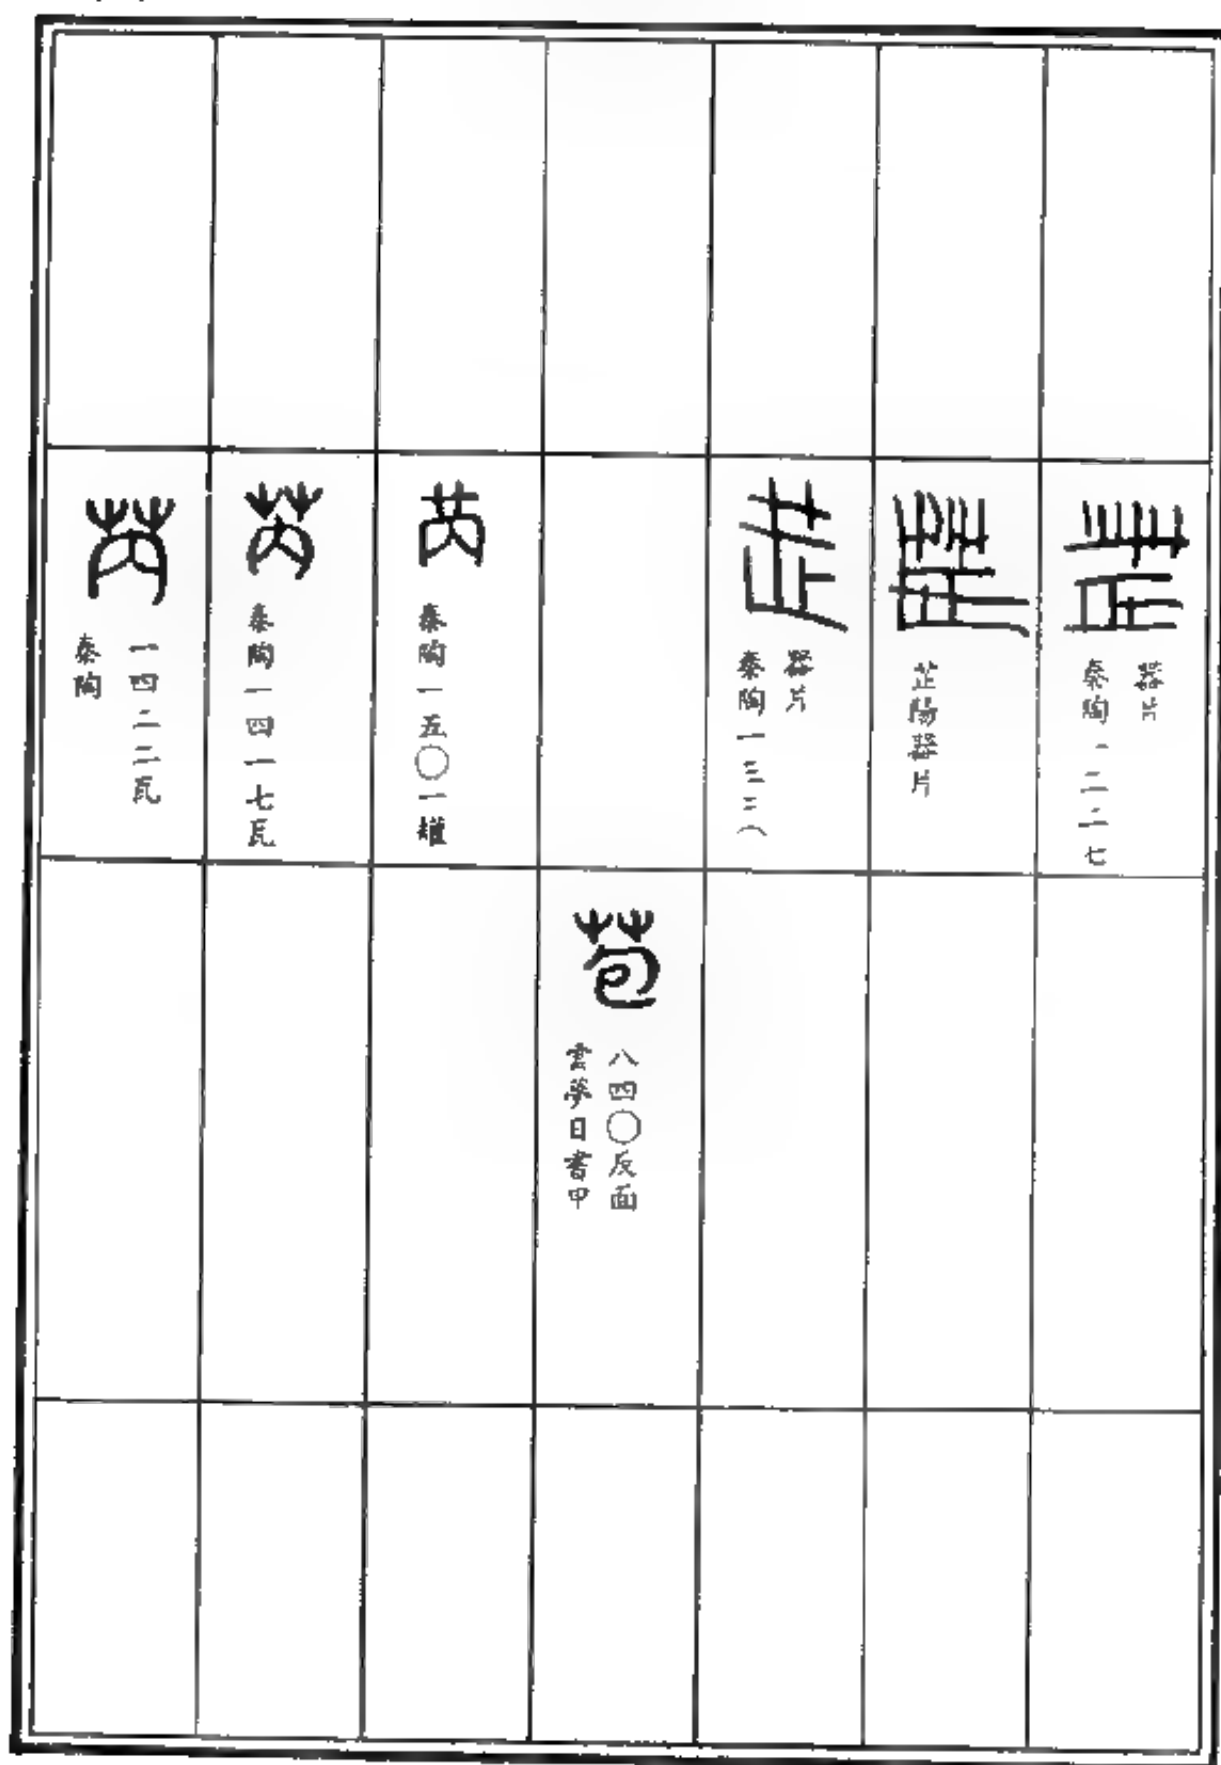 秦陶一二二七
器片
芷陽器片
秦陶一三三八
器片
苞
雲夢日書甲
八四〇反面
芮
秦陶一五〇一罐
芮
秦陶一四一七瓦
芮
秦陶
一四二二瓦